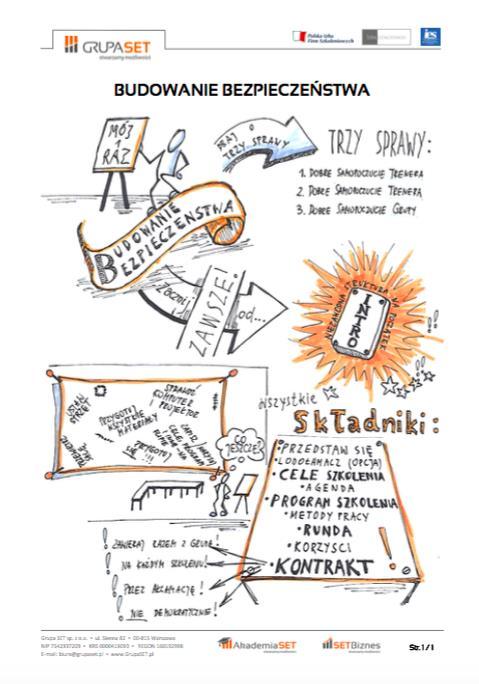 GRUPASET
stwarzamy możliwości
Polska Izba
Firm Szkoleniowych
BUDOWANIE BEZPIECZEŃSTWA
MÓJ
1
RAZ
TRZY SPRAWY
TRZY SPRAWY:
1. DOBRE SAMOPOCZUCIE TRENERA
2. DOBRE SAMOPOCZUCIE TRENERA
3. DOBRE SAMOPOCZUCIE GRUPY
BUDOWANIE
BEZPIECZEŃSTWA
Zacznij
ZAWSZE!
od...
STRUKTURA NA POCZĄTEK
INTRO
!!
!!
SPRAWDŹ
KOMPUTER
I PROJEKTOR
PRZYGOTUJ
WSZYSTKIE
MATERIAŁY
PRZYGOTUJ
SIĘ!!!
CO
JESZCZE?
Wszystkie
Składniki:
• PRZEDSTAW SIĘ
• LODOŁAMACZ (OPCJA)
• CELE SZKOLENIA
• AGENDA
• PROGRAM SZKOLENIA
• METODY PRACY
• RUNDA
• KORZYŚCI
• KONTRAKT !
! ZAWIERAJ RAZEM Z GRUPĄ!
! NA KAŻDYM SZKOLENIU!
! PRZEZ AKLAMACJĘ!
! NIE DEMOKRATYCZNIE!
Grupa SET sp. z o.o. • ul. Sienna 82 • 00-815 Warszawa
E-mail: biuro@grupaset.pl • www.GrupaSET.pl
AkademiaSET
SETBiznes
Str. 1 / 1